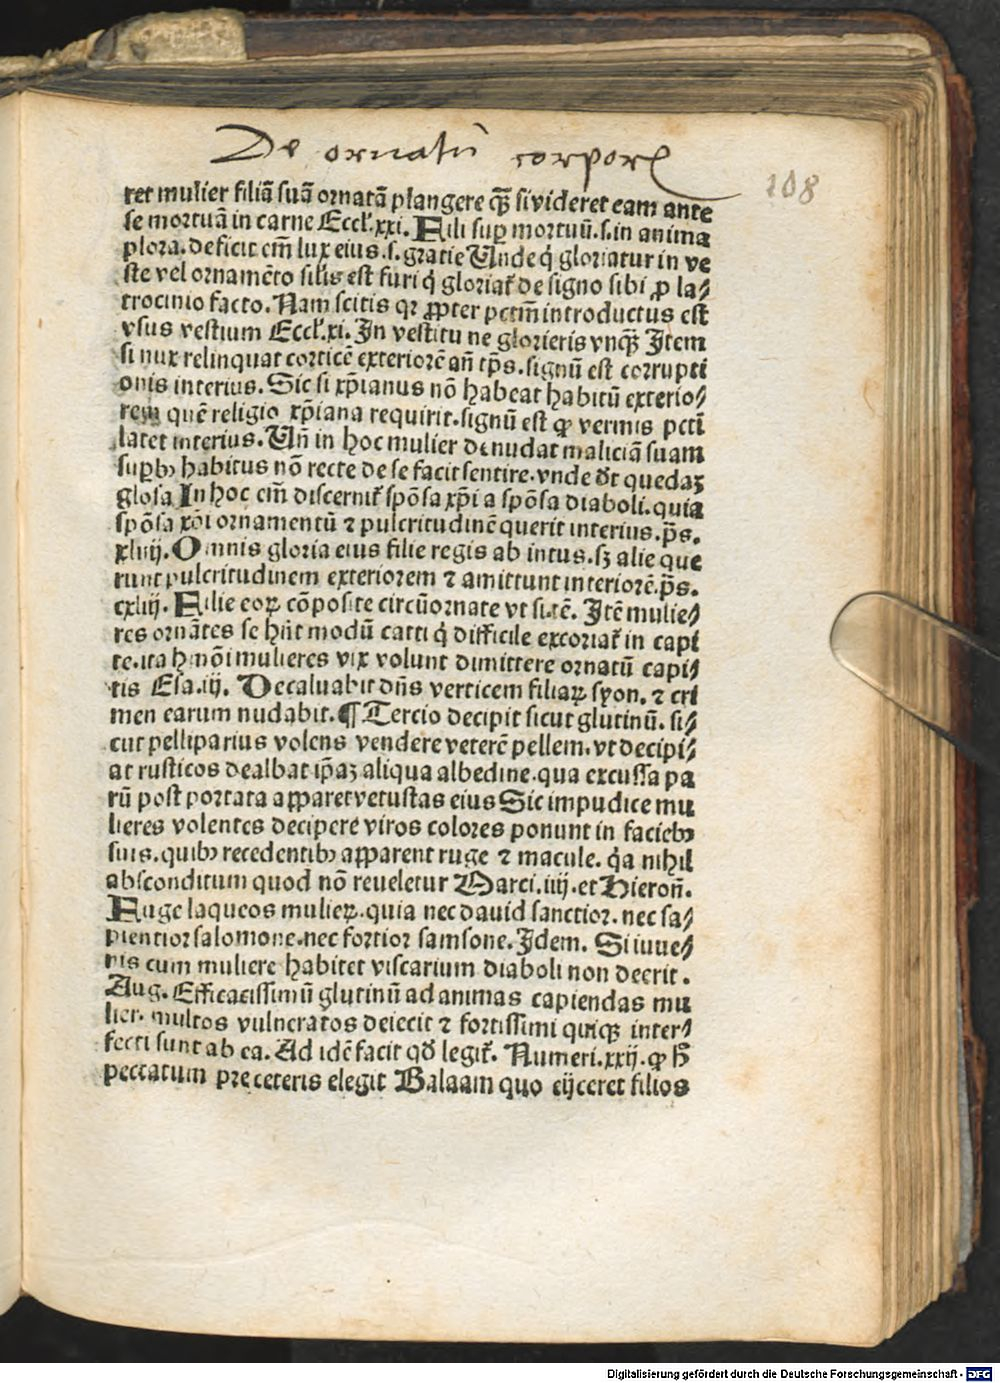 De ornatū corporꝭ
108
ret mulier filiā suā ornatā plangere qꝫ̄ si videret eam ante
se mortuā in carne Eccl'.xxi. Fili sup̱ mortuū.s.in anima
plora.deficit em̄ lux eius.s.gratie Unde q̇ gloriatur in ve
ste vel ornamēto silis est furi q̇ gloriat̉ de signo sibi ꝓ la⸗
trocinio facto. Nam scitis qꝛ ꝓpter pctm̄ introductus est
vsus vestium Eccl'.xi. In vestitu ne glorieris vnqꝫ̄ Item
si nux relinquat corticē exteriorē an̄ tp̄s.signū est corrupti
onis interius. Sic si xp̄ianus nō habeat habitū exterio⸗
rem quē religio xp̄iana requirit.signū est ꝙ vermis pcti
latet interius. Un̄ in hoc mulier denudat maliciā suam
supbꝰ habitus nō recte de se facit sentire.vnde dr̄t quedaꝫ
glosa In hoc em̄ discernit̉ spōsa xp̄i a spōsa diaboli.quia
spōsa xp̄i ornamentū ⁊ pulcritudinē querit interius.ps̄.
xliiij. Omnis gloria eius filie regis ab intus.sꝫ alie que
runt pulcritudinem exteriorem ⁊ amittunt interiorē.ps̄.
cxliij. Filie eoꝝ cōposite circūornate vt si.tē. Itē mulie⸗
res ornātes se hn̄t modū catti q̇ difficile excoriat̉ in capi
te.ita hmōi mulieres vix volunt dimittere ornatū capi⸗
tis Esa.iij. Decaluabit dn̄s verticem filiaꝝ syon. ⁊ cri
men earum nudabit. ¶ Tercio decipit sicut glutinū. si⸗
cut pelliparius volens vendere veterē pellem.vt decipi⸗
at rusticos dealbat ip̄aꝫ aliqua albedine.qua excussa pa
rū post portata aꝓparet vetustas eius Sic impudice mu
lieres volentes decipere viros colores ponunt in faciebꝰ
suis.quibꝰ recedentibꝰ aꝓparent ruge ⁊ macule. q̇a nihil
absconditum quod nō reueletur Marci.iiij.et Hieron̄.
Fuge laqueos mulieꝝ.quia nec dauid sanctior. nec sa⸗
pientior salomone.nec fortior samsone. Idem. Si iuue⸗
nis cum muliere habitet viscarium diaboli non deerit.
Aug. Efficacissimū glutinū ad animas capiendas mu
lier. multos vulneratos deiecit ⁊ fortissimi quiqꝫ inter⸗
fecti sunt ab ea. Ad idē facit qd̄ legit̉. Numeri.xxij.ꝙ h̄
peccatum pre ceteris elegit Balaam quo eijceret filios
Digitalisierung gefördert durch die Deutsche Forschungsgemeinschaft - DFG